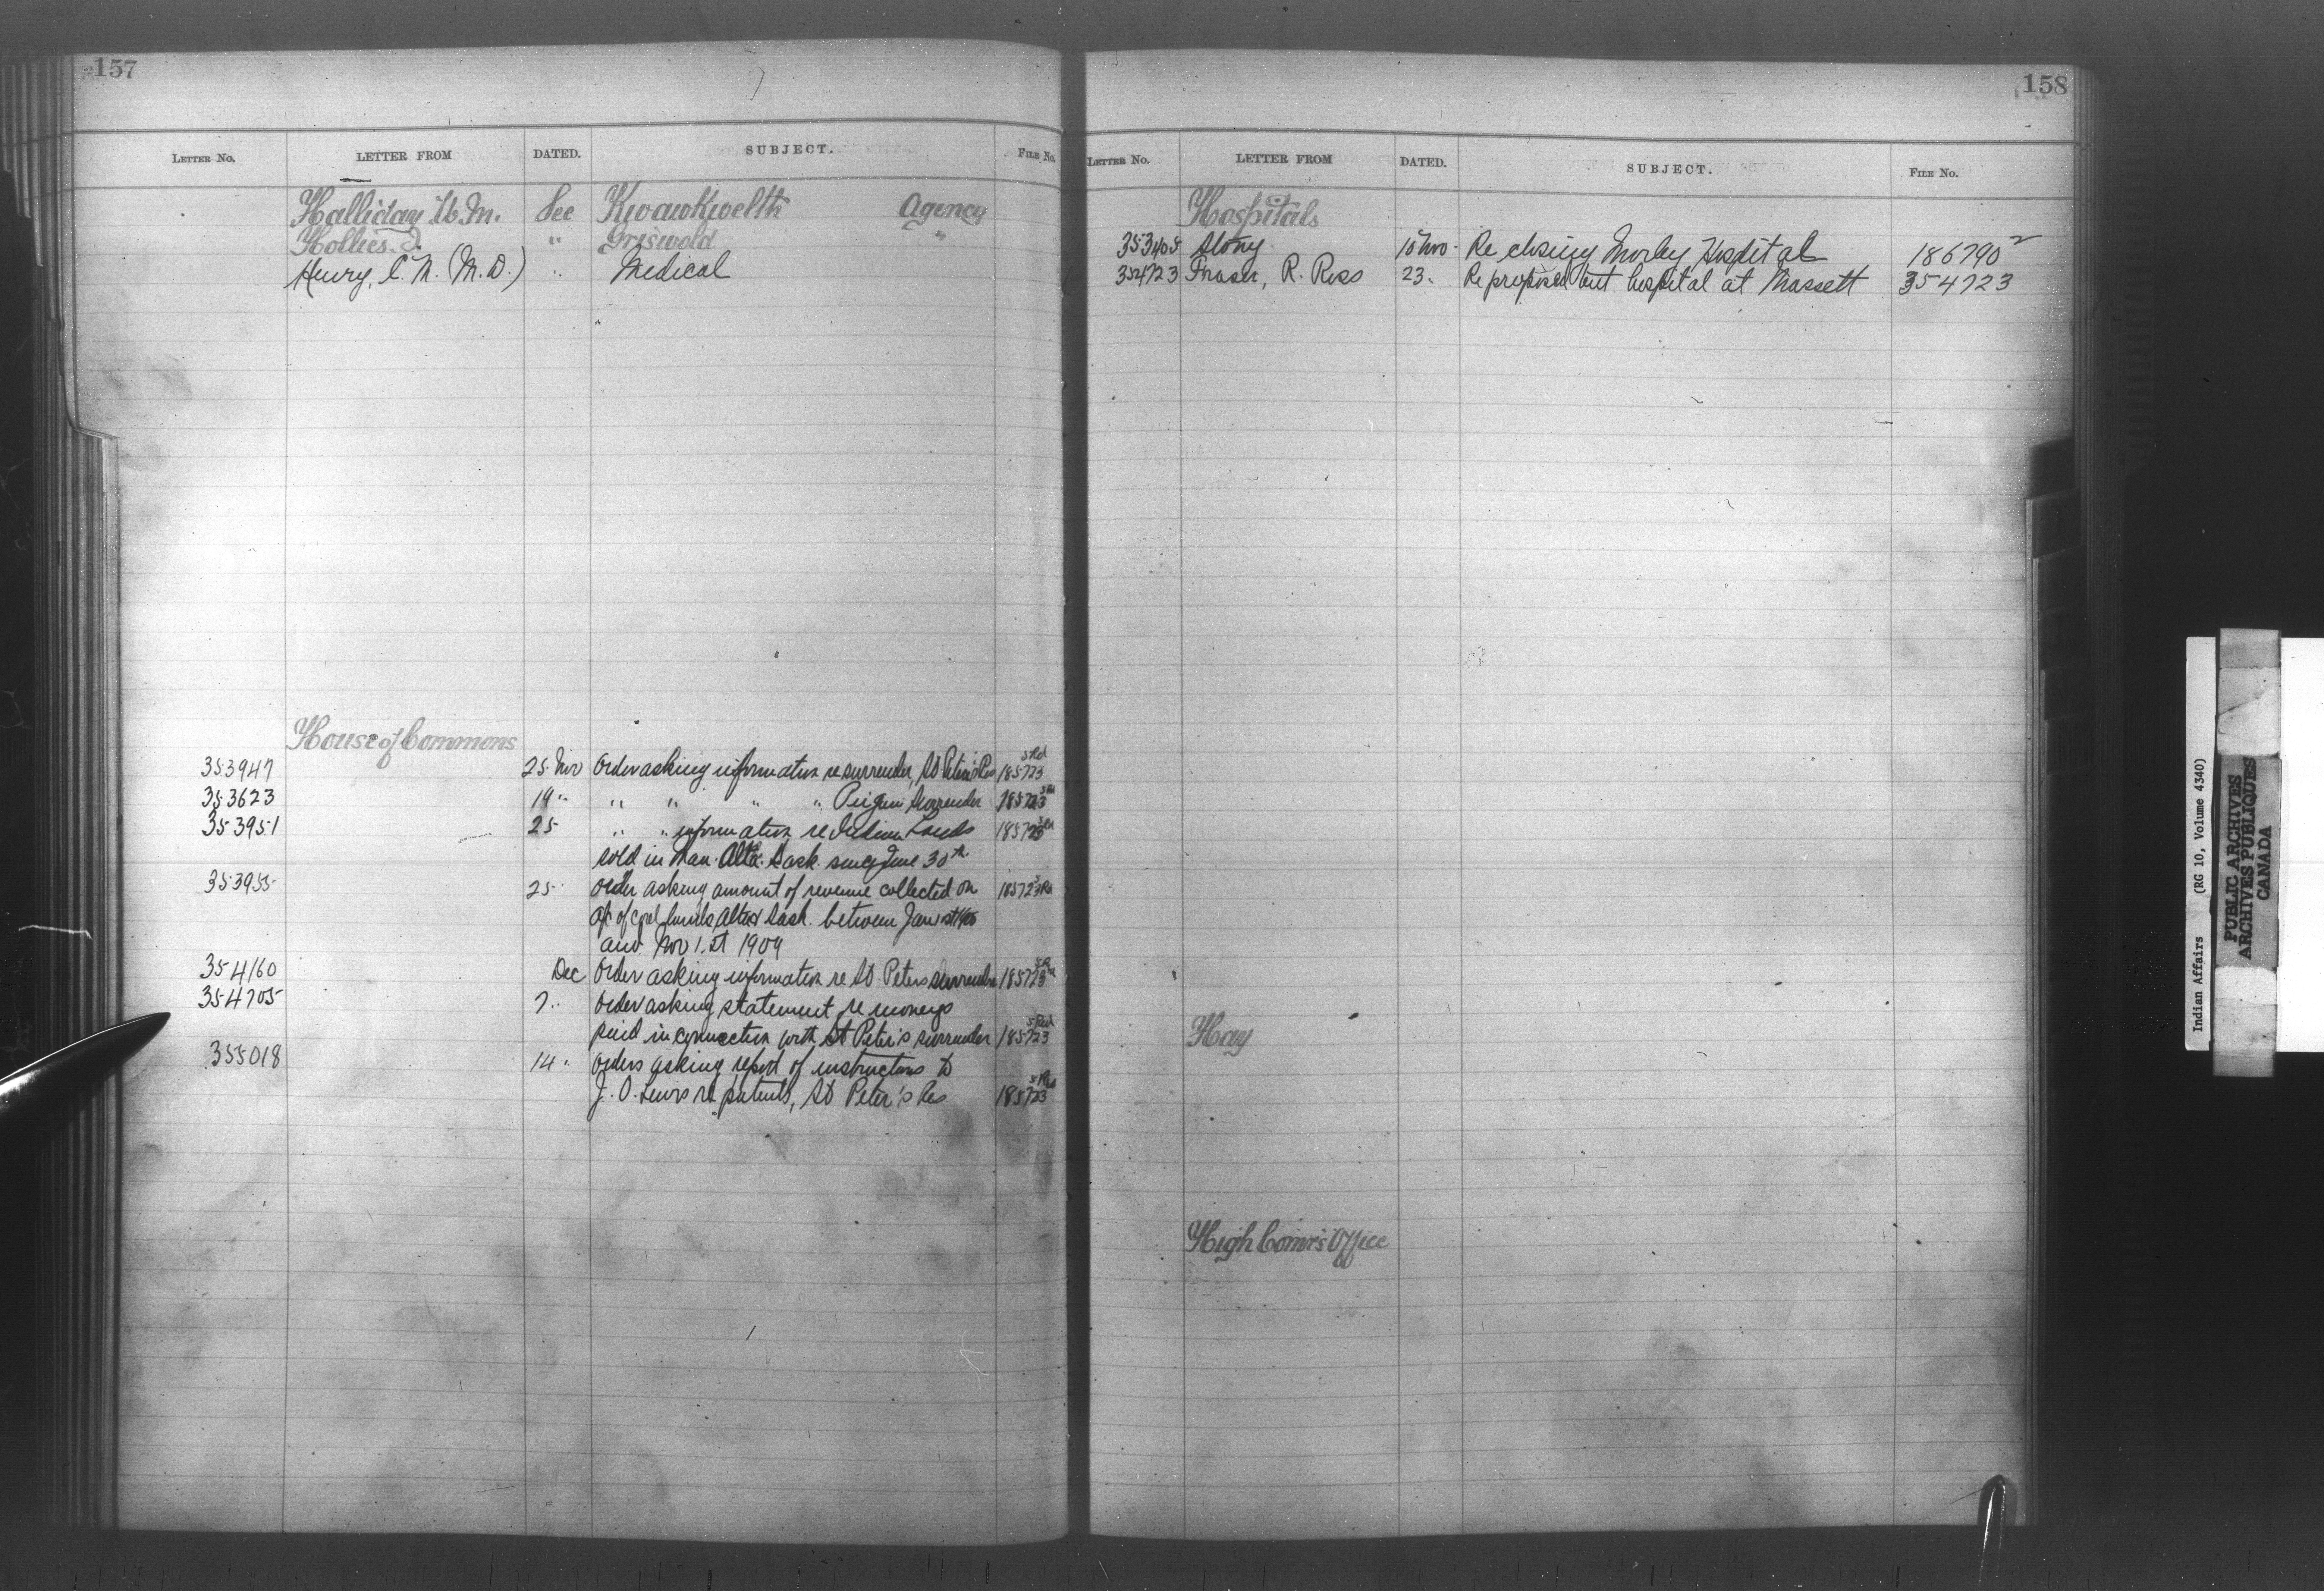 157
LETTER NO. LETTER FROM DATED. SUBJECT. FILE No.
Halliday W. M. See Kwawkwelth Agency
Hollies J. " Griswold "
Henry, C. M. (M.D.) " Medical
House of Commons
353947 25 Nov Order asking information re surrender, St Peter's Res 185723
353623 19 " " " " " Peigan Surrender 185723
353951 25 " " information re Indian Lands 185723
sold in Man. Alta. Sask. since June 30th
353955 25 " Order asking amount of revenue collected on 185723
a/c of coal lands Alta & Sask. between Jan 1st
and Nov 1st 1909
354160 Dec Order asking information re St. Peters surrender 185723
354705 7 " Order asking statement re moneys
paid in connection with St Peter's surrender 185723
355018 14 " Orders asking report of instructions to
J. O. Lewis re patents, St Peter's Res 185723
158
LETTER NO. LETTER FROM DATED. SUBJECT. FILE No.
Hospitals
353405 Stony 15 Nov. Re closing Morley Hospital 186790 2
354723 Fraser, R. Ross 23 " Re proposed tent hospital at Massett 354723
Hay
High Comr's Office
Indian Affairs (RG 10, Volume 4340)
PUBLIC ARCHIVES
ARCHIVES PUBLIQUES
CANADA